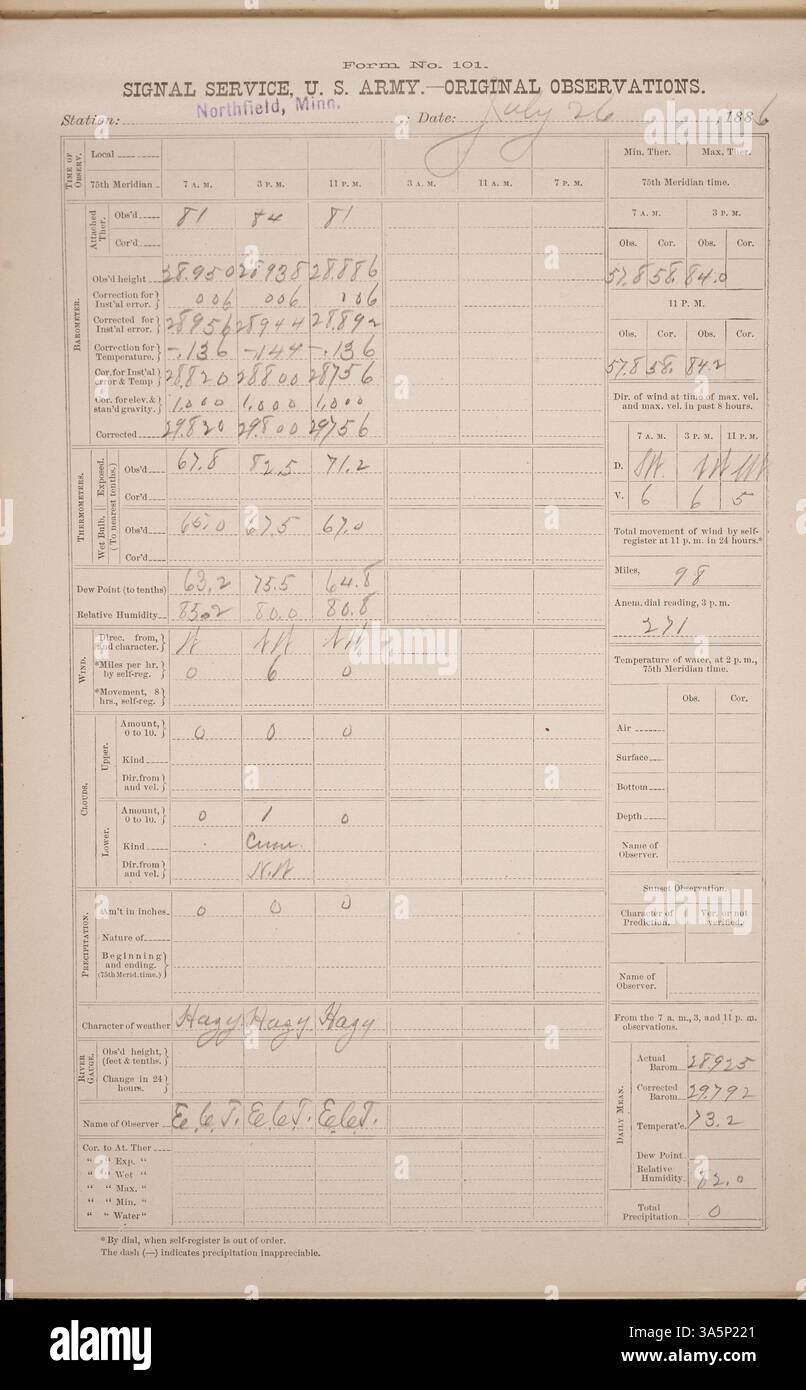 Form No. 101.
SIGNAL SERVICE, U. S. ARMY.—ORIGINAL OBSERVATIONS.
Station: Northfield, Minn. ; Date: July 26, 1886
TIME OF OBSERV.
Local
75th Meridian 7 A. M. 3 P. M. 11 P. M. 3 A. M. 11 A. M. 7 P. M.
BAROMETER.
Attached Ther.
Obs'd 81 84 81
Cor'd
Obs'd height 28.950 28938 28.886
Correction for Inst'al error. 006 006 006
Corrected for Inst'al error. 28956 28944 28.892
Correction for Temperature. -.136 -.144 -.136
Cor. for Inst'al error & Temp 28,820 28800 28756
Cor. for elev. & stan'd gravity. 1,000 1,000 1,000
Corrected 29.820 29.800 29756
THERMOMETERS.
(To nearest tenths.)
Exposed.
Obs'd 67.8 82.5 71.2
Cor'd
Wet Bulb.
Obs'd 65.0 67.5 67.0
Cor'd
Dew Point (to tenths) 63.2 75.5 64.8
Relative Humidity 85.2 80.0 80.8
WIND.
Direc. from, and character. W NW NW
*Miles per hr. by self-reg. 0 6 0
*Movement, 8 hrs., self-reg.
CLOUDS.
Upper.
Amount, 0 to 10. 0 0 0
Kind
Dir. from and vel.
Lower.
Amount, 0 to 10. 0 1 0
Kind Cum.
Dir. from and vel. N.W
PRECIPITATION.
Am't in inches 0 0 0
Nature of
Beginning and ending. (75th Merid. time.)
Character of weather Hazy. Hazy. Hazy
RIVER GAUGE.
Obs'd height, (feet & tenths.)
Change in 24 hours.
Name of Observer E.C.T. E.C.T. E.C.T.
Cor. to At. Ther
" " Exp. "
" " Wet "
" " Max. "
" " Min. "
" " Water "
* By dial, when self-register is out of order.
The dash (—) indicates precipitation inappreciable.
Min. Ther. Max. Ther.
75th Meridian time.
7 A. M. 3 P. M.
Obs. Cor. Obs. Cor.
57.8 58. 84.0
11 P. M.
Obs. Cor. Obs. Cor.
57.8 58. 84.2
Dir. of wind at time of max. vel. and max. vel. in past 8 hours.
7 A. M. 3 P. M. 11 P. M.
D. NW NW
V. 6 6 5
Total movement of wind by self-register at 11 p. m. in 24 hours.*
Miles, 98
Anem. dial reading, 3 p. m.
271
Temperature of water, at 2 p. m., 75th Meridian time.
Obs. Cor.
Air
Surface
Bottom
Depth
Name of Observer.
Sunset Observation.
Character of Prediction. Ver. or not verified.
Name of Observer.
From the 7 a. m., 3, and 11 p. m. observations.
DAILY MEAN.
Actual Barom. 28.925
Corrected Barom 29.792
Temperat'e. 73.2
Dew Point
Relative Humidity 82.0
Total Precipitation 0
alamy
Image ID: 3A5P221
www.alamy.com